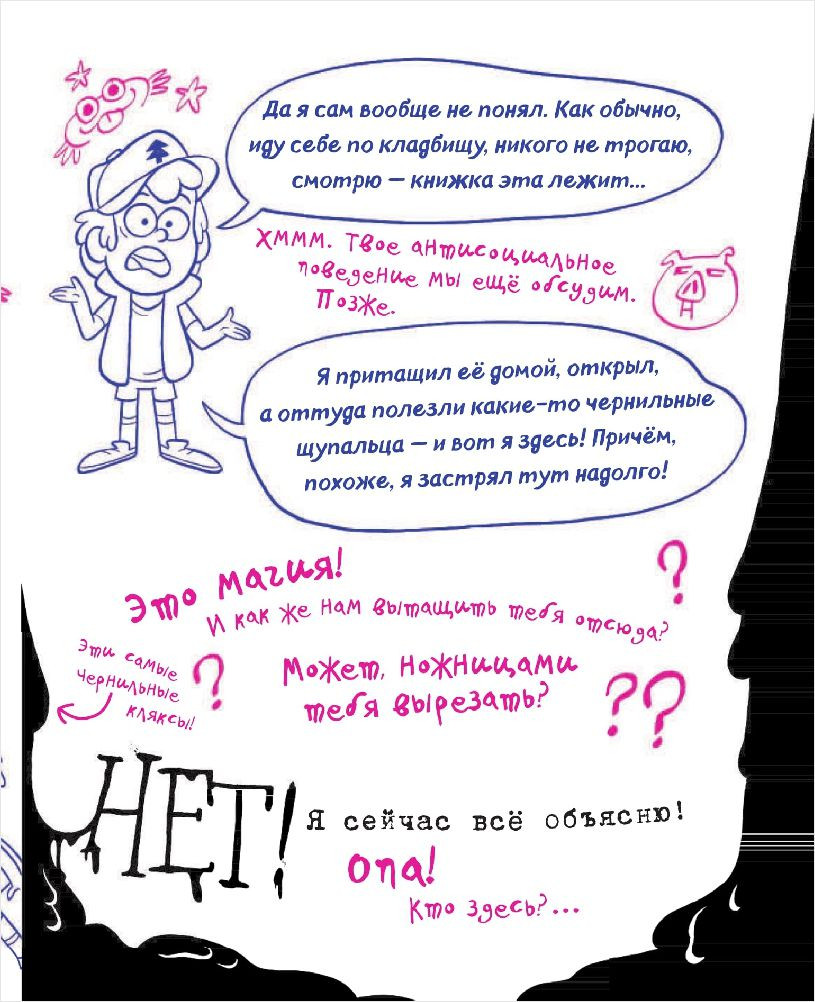 Да я сам вообще не понял. Как обычно,
иду себе по кладбищу, никого не трогаю,
смотрю — книжка эта лежит...
Хммм. Твое антисоциальное
поведение мы ещё обсудим.
Позже.
Я притащил её домой, открыл,
а оттуда полезли какие-то чернильные
щупальца — и вот я здесь! Причём,
похоже, я застрял тут надолго!
Это магия!
?
И как же нам вытащить тебя отсюда?
Эти самые
чернильные
кляксы!
?
Может, ножницами
тебя вырезать?
??
НЕТ!
Я сейчас всё объясню!
Опа!
Кто здесь?...